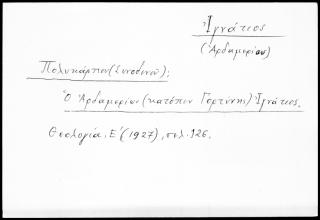 Ἰγνάτιος
(Ἀρδαμερίου)
Πολυκάρπου (Συνοδινοῦ);
Ὁ Ἀρδαμερίου (κατόπιν Γορτύνης) Ἰγνάτιος.
Θεολογία. Ε΄ (1927), σελ. 126.